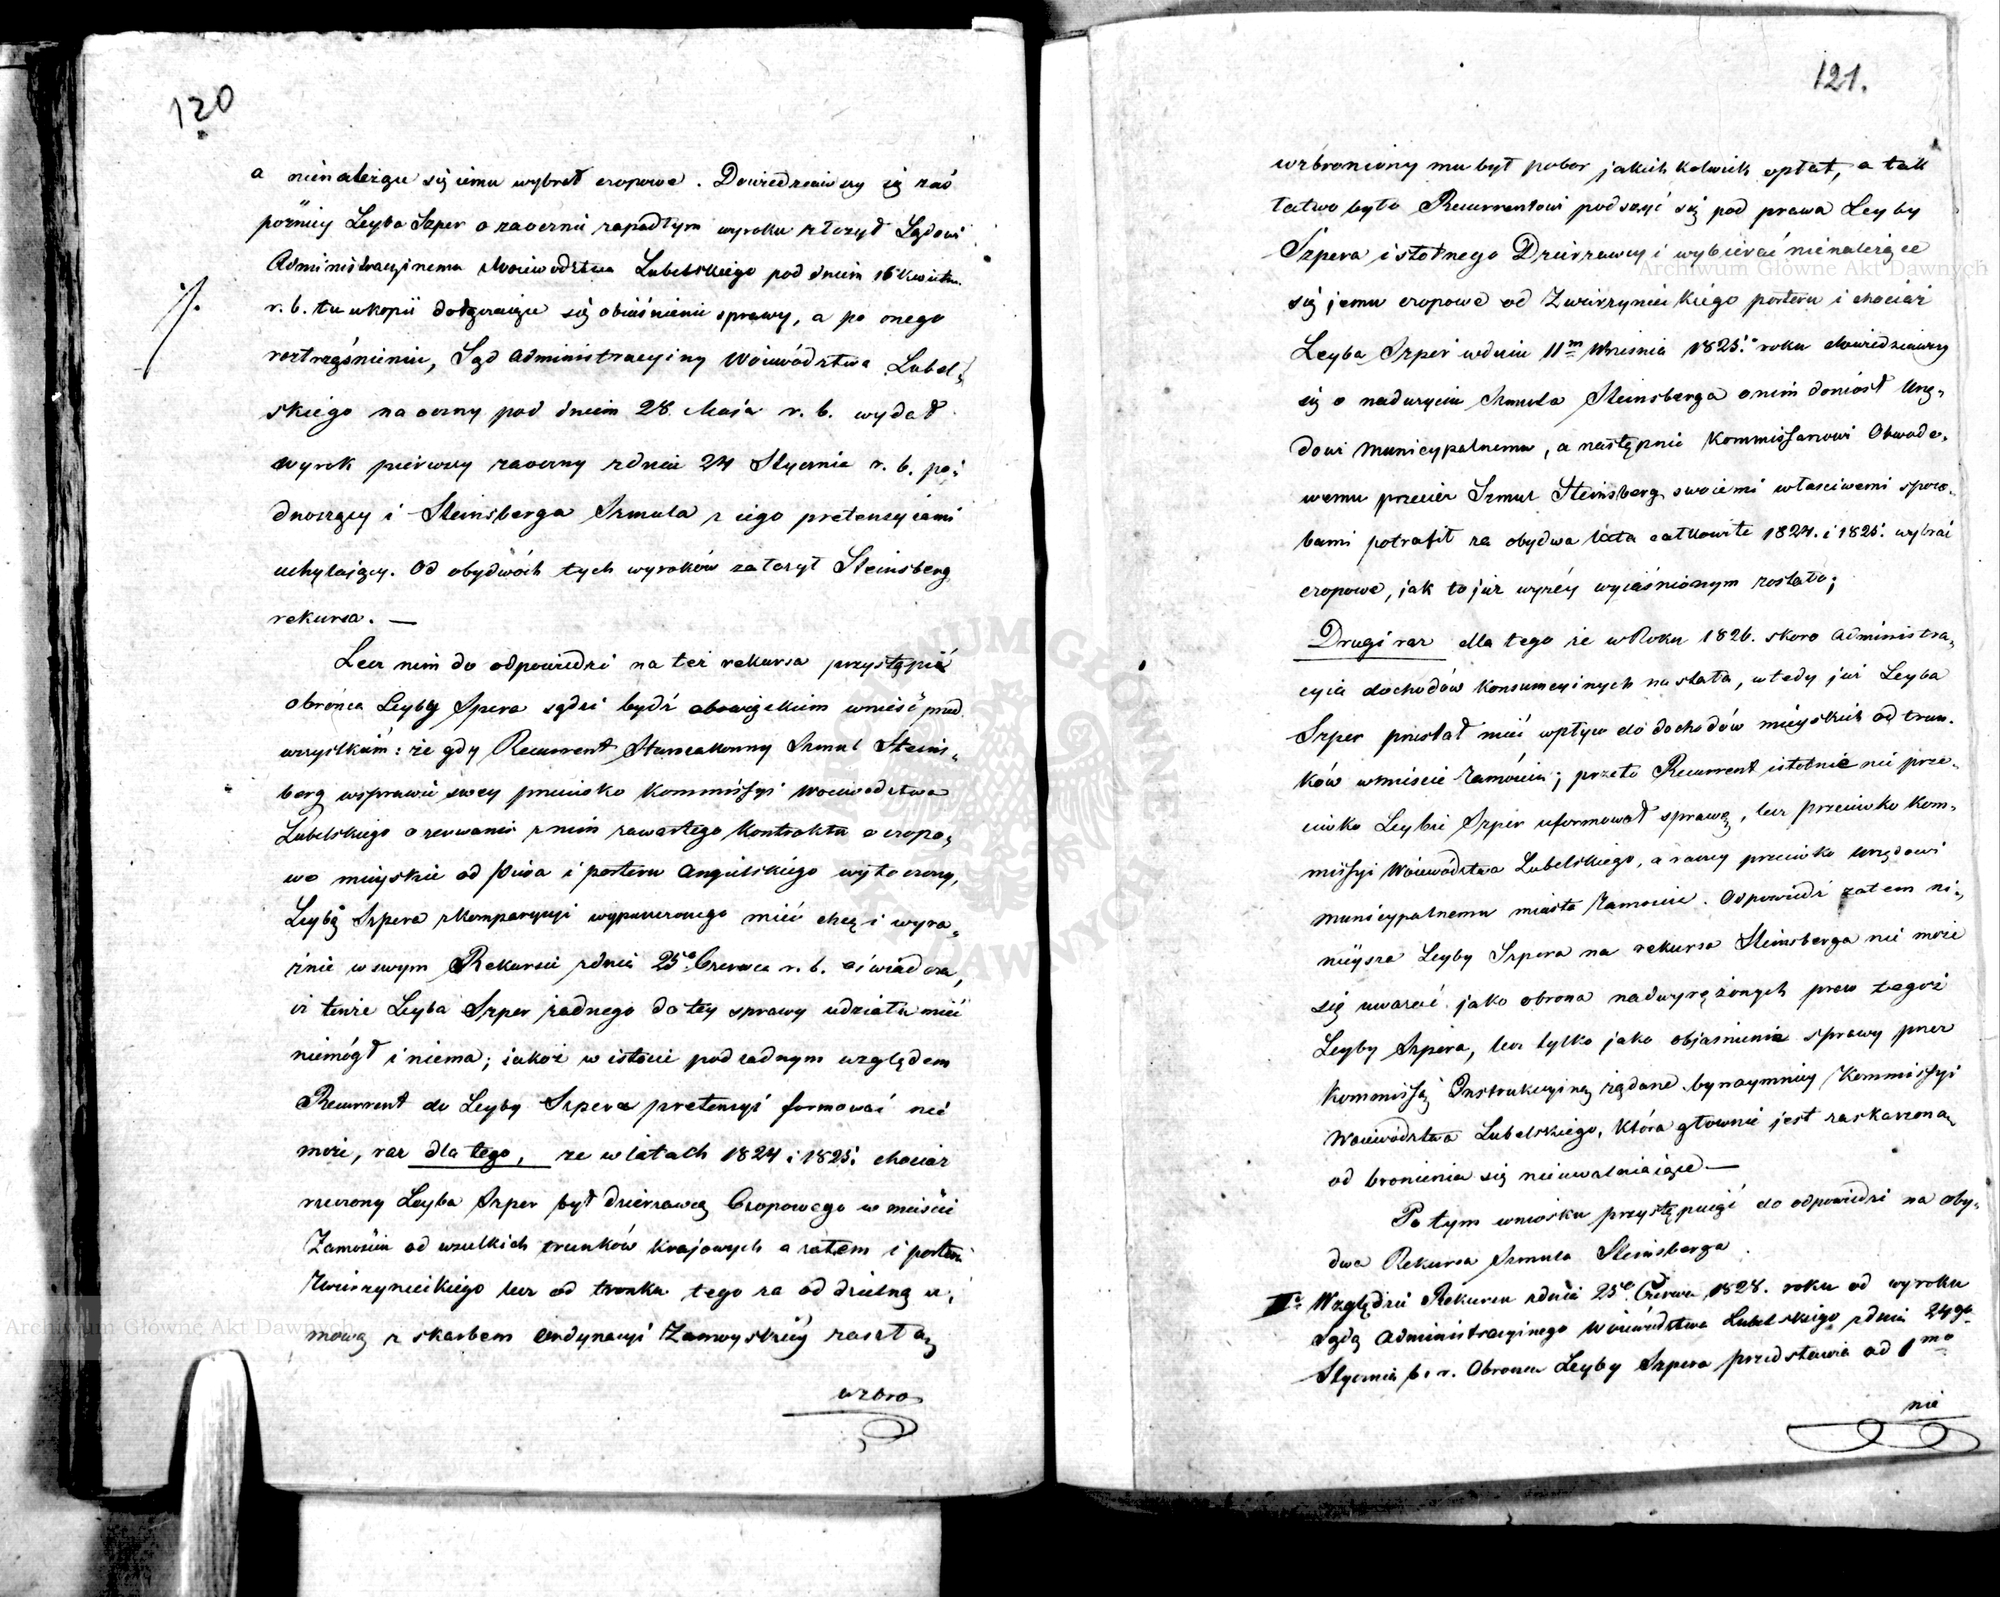 120
a nienależące się jemu wybrał czopowe. Dowiedziawszy się zaś
później Leyba Szper o zaocznie zapadłym wyroku złożył Sądowi
Administracyinemu Woiewództwa Lubelskiego pod dniem 16 Kwietn.
r. b. tu w kopii dołączaiące się obiaśnienie sprawy, a po onego
roztrząśnieniu, Sąd Administracyiny Woiewództwa Lubel-
skiego naoczny pod dniem 28 Maja r. b. wydał
wyrok pierwszy zaoczny z dnia 24 Stycznia r. b. po-
dnoszący i Steinsberga Szmula z iego pretensyiami
uchylaiący. Od obydwóch tych wyroków założył Steinsberg
rekursa. —
Lecz nim do odpowiedzi na też rekursa przystąpię
obrońca Leyby Szpera sądzi bydź obowiązkiem wnieść przed
wszystkiém: że gdy Recurrent Starozakonny Szmul Steins-
berg w sprawie swey przeciwko Kommissyi Woiewództwa
Lubelskiego o zerwanie z nim zawartego Kontraktu o czopo-
we mieyskie od Piwa i porteru Angielskiego wytoczoney,
Leybę Szpera z komparycyi wypuszczonego mieć chcę i wyra-
źnie w swym Rekursie z dnia 25º Czerwca r. b. oświadcza,
iż tenże Leyba Szper żadnego do tey sprawy udziału mieć
niemógł i niema; jakoż w istocie pod żadnym względem
Recurrent do Leyby Szpera pretensyi formować nie
może, raz dla tego, że w latach 1824 i 1825. chociaż
rzeczony Leyba Szper był dzierżawcą Czopowego w mieście
Zamościu od wszelkich trunków krajowych a zatem i porteru
Zwierzynieckiego lecz od trunku tego za oddzielną u-
mową z skarbem Ordynacyi Zamoyskiey zaszłą
wzbro
121.
wzbroniony mu był pobor jakichkolwiek opłat, a tak
łatwo było Recurrentowi podszyć się pod prawa Leyby
Szpera istotnego Dzierżawcy i wybierać nienależące
się jemu czopowe od Zwierzynieckiego porteru i chociaż
Leyba Szper w dniu 11m Września 1825. roku dowiedziawszy
się o nadużyciu Szmula Steinsberga o nim doniósł Urzę-
dowi Municypalnemu, a następnie Kommissarzowi Obwodo-
wemu przecież Szmul Steinsberg swoiemi właściwemi sposo-
bami potrafił za obydwa lata całkowite 1824. i 1825. wybrać
czopowe, jak to już wyżéy wyiaśnionym zostało;
Drugi raz dla tego że w Roku 1826. skoro Administra-
cyia dochodów Konsumcyinych nastała, wtedy już Leyba
Szper przestał mieć wpływ do dochodów mieyskich od trun-
ków w mieście Zamościu; przeto Recurrent istotnie nie prze-
ciwko Leybie Szper uformował sprawę, lecz przeciwko Kom-
missyi Woiewództwa Lubelskiego, a raczey przeciwko Urzędowi
Municypalnemu miasta Zamościa. Odpowiedź zatem ni-
nieysza Leyby Szpera na rekursa Steinsberga nie może
się uważać jako obrona nadwyrężonych praw tegoż
Leyby Szpera, lecz tylko jako objaśnienie sprawy przez
Kommissyą Instrukcyiną żądane bynaymniey Kommissyi
Woiewództwa Lubelskiego, która głownie jest zaskarżoną
od bronienia się nieuwalniaiące —
Po tym wniosku przystępuiąc do odpowiedzi na oby-
dwa Rekursa Szmula Steinsberga.
Iº Względnie Rekursu z dnia 25º Czerwca 1828. roku od wyroku
Sądu Administracyinego Woiewództwa Lubelskiego z dnia 24go
Stycznia b. r. Obrońca Leyby Szpera przedstawia od 1mo
nie
Archiwum Główne Akt Dawnych
Archiwum Główne Akt Dawnych
ARCHIWUM GŁÓWNE AKT DAWNYCH